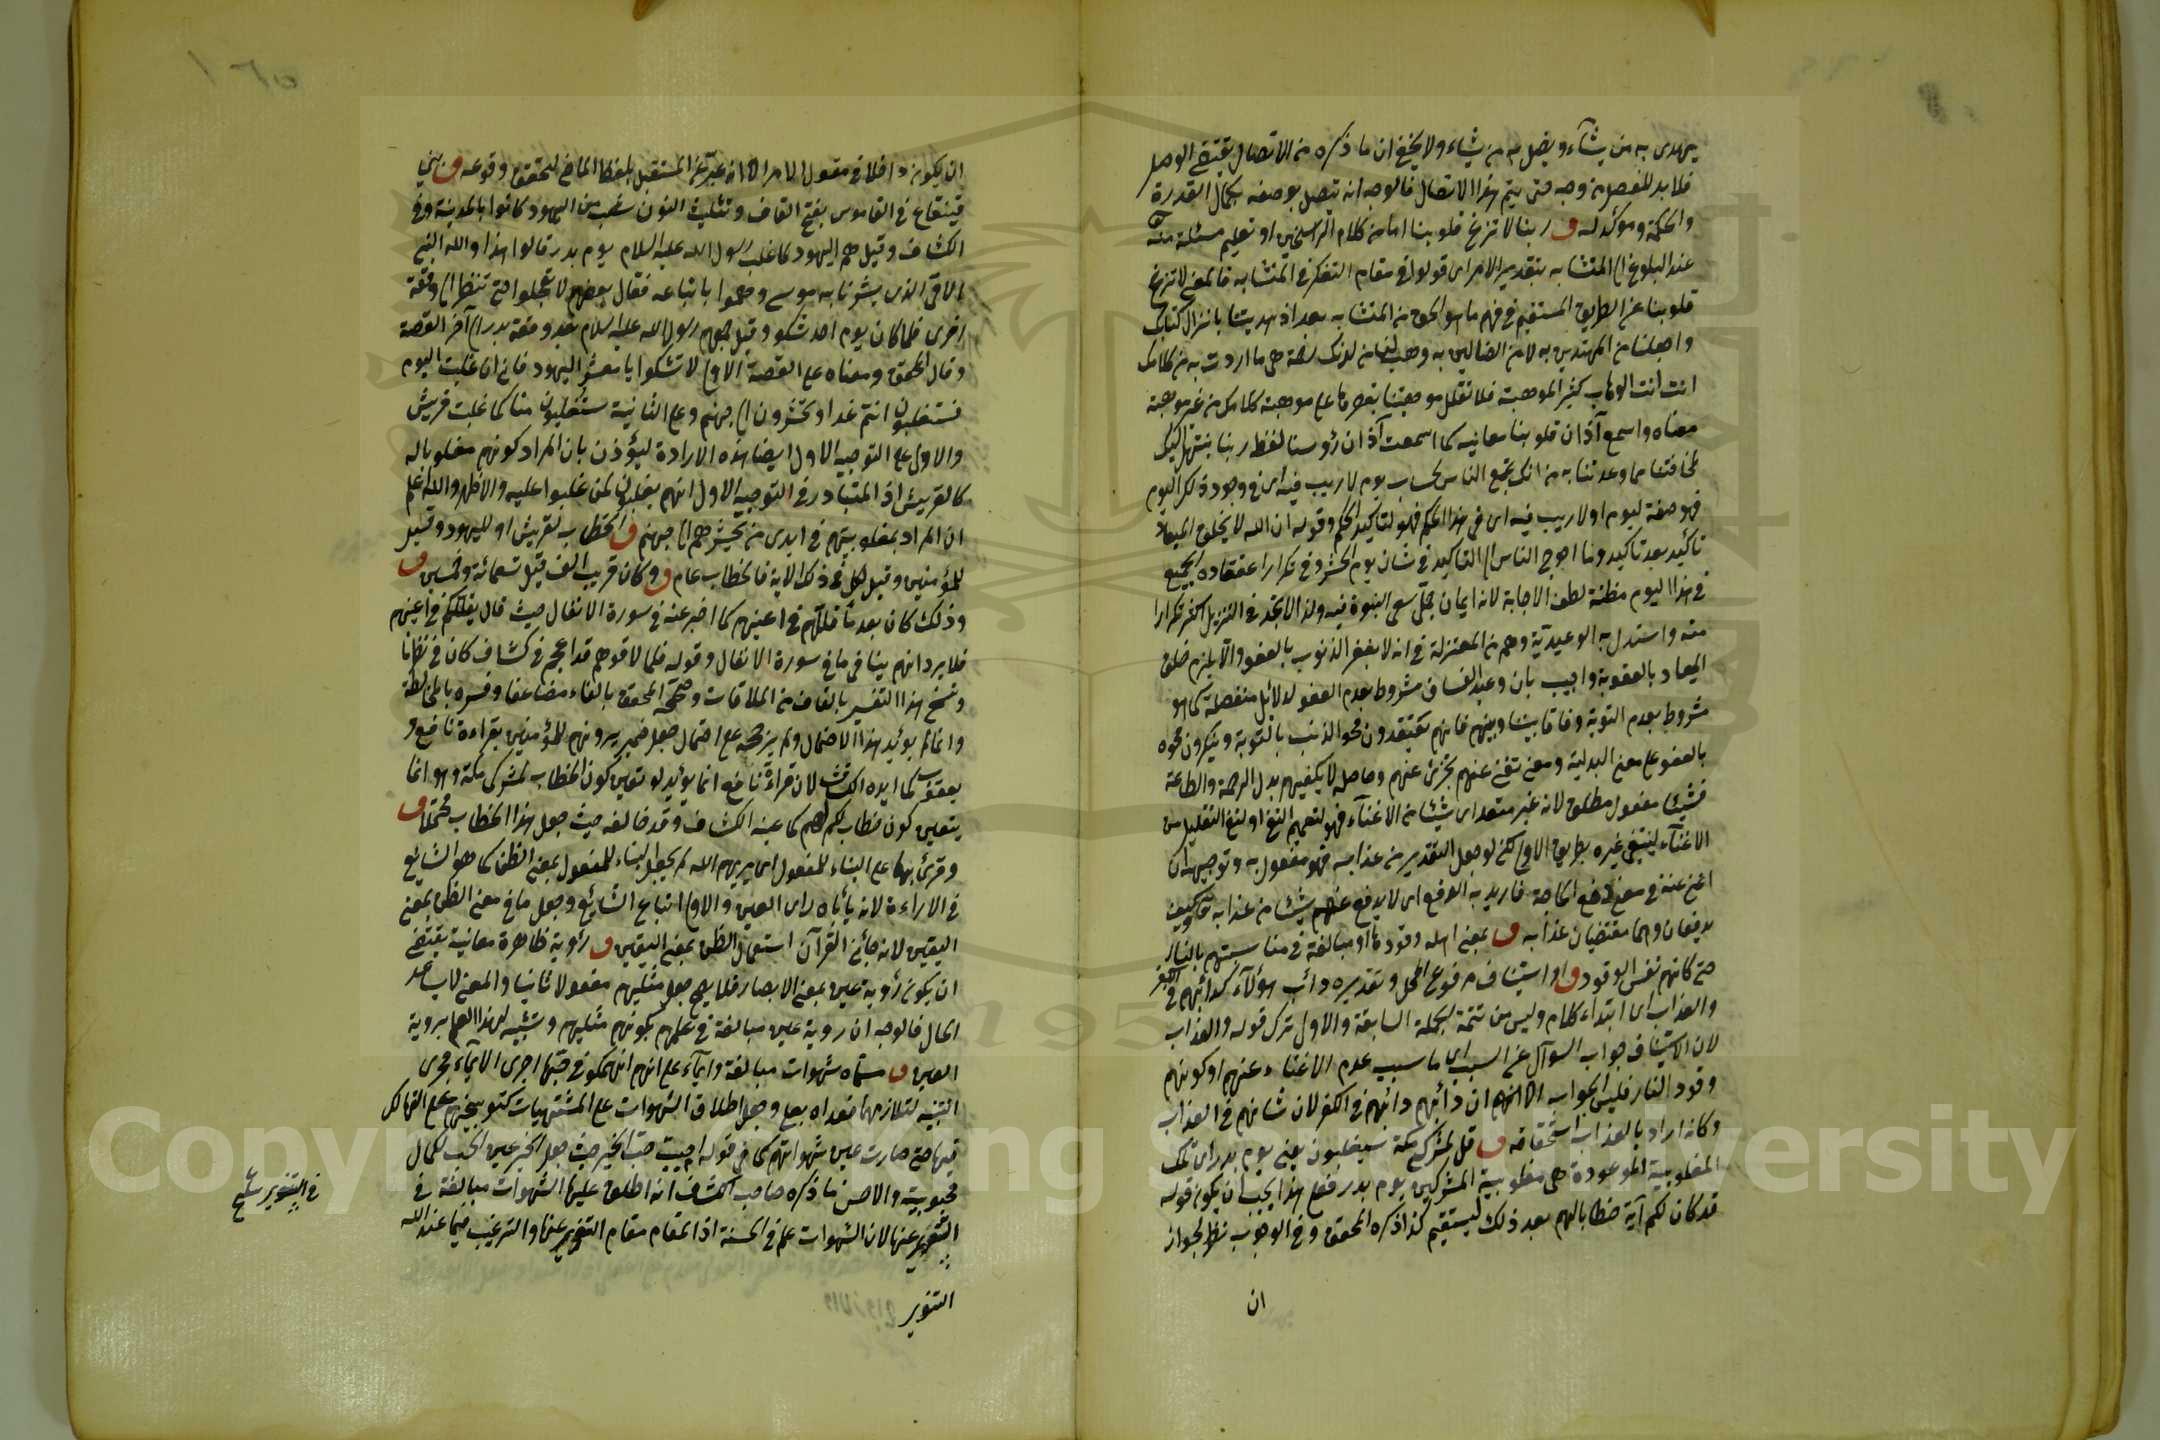 يهدى به من يشآء ويضل به من يشاء ولا يخفى ان ما ذكره من الاتصال يقتضى الوصل
فلا بد للفصل من وجه حتى يتم هذا الاتصال فالوجه انه تتصل بوصفه بكمال القدرة
والحكمة ومؤكد له ق ربنا لا تزغ قلوبنا اما من كلام الراسخين او تعليم مسئلة منه
عند البلوغ الى المتشابه بتقدير الامر اى قولوا فى مقام التفكر فى المتشابه فالمعنى لا تزغ
قلوبنا عن الطريق المستقيم فى فهم ما هو الحق من المتشابه بعد اذ هديتنا بانزال كتابك
واجعلنا من المهتدين به لا من الضالين به وهب لنا من لدنك رحمة هى ما اردت به من كلامك
انك انت الوهاب كثير الموهبة فلا تقلل موهبتنا بقصرها على موهبة
معناه واسمع آذان قلوبنا معانيه كما اسمعت آذان رؤسنا لفظه ربنا ننتهل اليك
لمخافتنا مما وعدتنا به من انك تجمع الناس لحساب يوم لا ريب فيه اى فى وجود ذلك اليوم
فهو صفة ليوم اولا ريب فيه اى فى هذا الحكم فهو لتأكيد الحكم وقوله ان الله لا يخلف الميعاد
تأكيد بعد تاكيد وما احوج الناس الى التاكيد فى شان يوم الحشر وفى تكرار اعتقاده الجميع
فى هذا اليوم مظنة لطف الاجابة لانه ايمان جل سعى النبوة فيه ولذا لا تجد فى التنزيل اكثر تكرارا
منه واستدل به الوعيدية وهم من المعتزلة فى انه لا يغفر الذنوب بالعفو والا يلزم خلف
الميعاد بالعقوبة واجيب بان وعيد الفساق مشروط بعدم العفو لدلائل منفصلة كما هو
مشروط بعدم التوبة وفاقا بيننا وبينهم فانهم يعتقدون محو الذنب بالتوبة وينكرون محوه
بالعفو على معنى البدلية ومعنى تغنى عنهم تجزئ عنهم وحاصله لا يكفيهم بدل الرحمة والطاعة
فشيئا مفعول مطلق لانه غير متعد اى شيئا من الاغنآء فهو لتعميم النفى او لنفى التقليل من
الاغنآء لينتفى غيره بطريق الاولى لكن لو جعل التقدير من عذابه فهو مفعول به وتوجيهه ان
اغنى عنه فى معنى دفع الحاجة فاريد به الدفع اى لا يدفع عنهم شيئا من عذابه فكيف
يدفعان وهما مقتضيان عذابه ق بمعنى اهله وقودها او مبالغة فى مناسبتهم بالنار
حتى كانهم نفس الوقود ق او استيناف مرفوع المحل وتقديره دأب هؤلآء كدأبهم فى الكفر
والعذاب اى ابتداء كلام وليس من تتمة الجملة السابقة والاولى ترك قوله والعذاب
لان الاستيناف جواب السوآل عن السبب اى ما سبب عدم الاغناء عنهم او كونهم
وقود النار فليس الجواب الا انهم ان دأبهم دابهم فى الكفر لان شانهم فى العذاب
وكانه اراد بالعذاب استحقاقه ق قل لمشركى مكة سيغلبون يعنى يوم بدر اى تلك
المغلوبية الموعودة هى مغلوبية المشركين يوم بدر فعلى هذا يجب ان يكون قوله
قد كان لكم آية خطابا لهم بعد ذلك ليستقيم كذا ذكره المحقق وفى الوجوب نظر لجواز
ان
ان يكون داخلا فى مقول الامر الا انه عبر عن المستقبل بلفظ الماضى لتحقق وقوعه ق بنى
قينقاع فى القاموس بفتح القاف وتثليث النون شعب من اليهود كانوا بالمدينة وفى
الكشاف وقيل هم اليهود لما غلب رسول الله عليه السلام يوم بدر قالوا هذا والله النبى
الامى الذى بشرنا به موسى وهموا باتباعه فقال بعضهم لا تعجلوا حتى تنظروا الى وقعة
اخرى فلما كان يوم احد شكوا وقيل جمعهم رسول الله عليه السلام بعد وقعة بدر الى آخر القصة
وقال المحقق ومعناه على القصة الاولى لا تشكوا يا معشر اليهود فانى ان غلبت اليوم
فستغلبون انتم غدا وتحشرون الى جهنم وعلى الثانية ستغلبون منا كما غلبت قريش
والاولى على التوجيه الاول ايضا هذه الارادة ليؤذن بان المراد كونهم مغلوبا له
كالقريش اذ المتبادر فى التوجيه الاول انهم يغلبون لمن غلبوا عليه والاظهر والله اعلم
ان المراد بمغلوبيتهم فى ايدى من يحشرهم الى جهنم ق الخطاب لقريش او لليهود وقيل
للمؤمنين وقيل لكل فى ذلك الآية فالخطاب عام ق وكان قريب الف قيل تسعمائة وخمسين ق
وذلك كان بعد ما قللهم فى اعينهم كما اخبر عنه فى سورة الانفال حيث قال يقللكم فى اعينهم
فلا يرد انهم ينافى ما فى سورة الانفال وقوله فلما لاقوهم قد اعجم فى كشاف كان فى نظرنا
ونسخ هذا التفسير بالقاف من الملاقات وصححه المحقق بالفاء مضاعفا وفسره بالمخالطة
وانما لم يؤيد هذا الاحتمال ولم يرجحه على احتمال جعل ضمير يرونهم للمؤمنين بقراءة نافع و
يعقوب كما ايده الكشاف لان قراءة نافع انما يؤيد لو تعين كون الخطاب لمشركى مكة وهو انما
يتعين كون خطاب لكم لهم كما عينه الكشاف وقد خالفه حيث جعل هذا الخطاب محتملا ق
وقرئ بهما على البناء للمفعول اى يريهم الله لم يجعل البناء للمفعول بمعنى الظن كما هو الشايع
فى الاراءة لانه يأباه راى العين والاولى اتباع الشايع وجعل ما فى معنى الظن بمعنى
اليقين لانه جائز القرآن استعمال الظن بمعنى اليقين ق رؤية ظاهرة معاينة يقتضى
ان يكون رؤية عين بمعنى الابصار فلا يصح جعل مثليهم مفعولا ثانيا والمعنى لا يساعد
الحال فالوجه ان روية عين مبالغة فى علمهم بكونهم مثليهم وتشبيه لهذا العلم بروية
العين ق سماه شهوات مبالغة وايمآء على انهم انهمكوا فى حبها اجرى الايمآء مجرى
التنبيه لتلازمهما فعداه بعلى وجعل اطلاق الشهوات على المشتهيات كتوبيخهم على التهالك
فيها حتى صارت عين شهواتهم كما فى قوله احببت حب الخير حيث جعل الخير عين الحب لكمال
محبوبيته والاحسن ما ذكره صاحب الكشاف انه اطلق عليها الشهوات مبالغة فى
التنفير عنها لان الشهوات علم فى الخسة اذ المقام مقام التنفير عنها والترغيب فيما عند الله
التنوير
فى التنوير
Copyright © King Saud University
1957